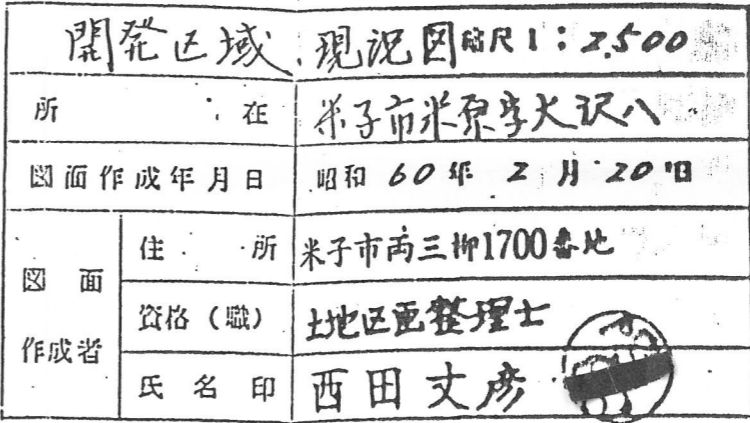 開発区域 現況図 縮尺1:2,500
所在 米子市米原字大沢八
図面作成年月日 昭和60年2月20日
図面作成者
住所 米子市両三柳1700番地
資格(職) 土地区画整理士
氏名印 西田文彦